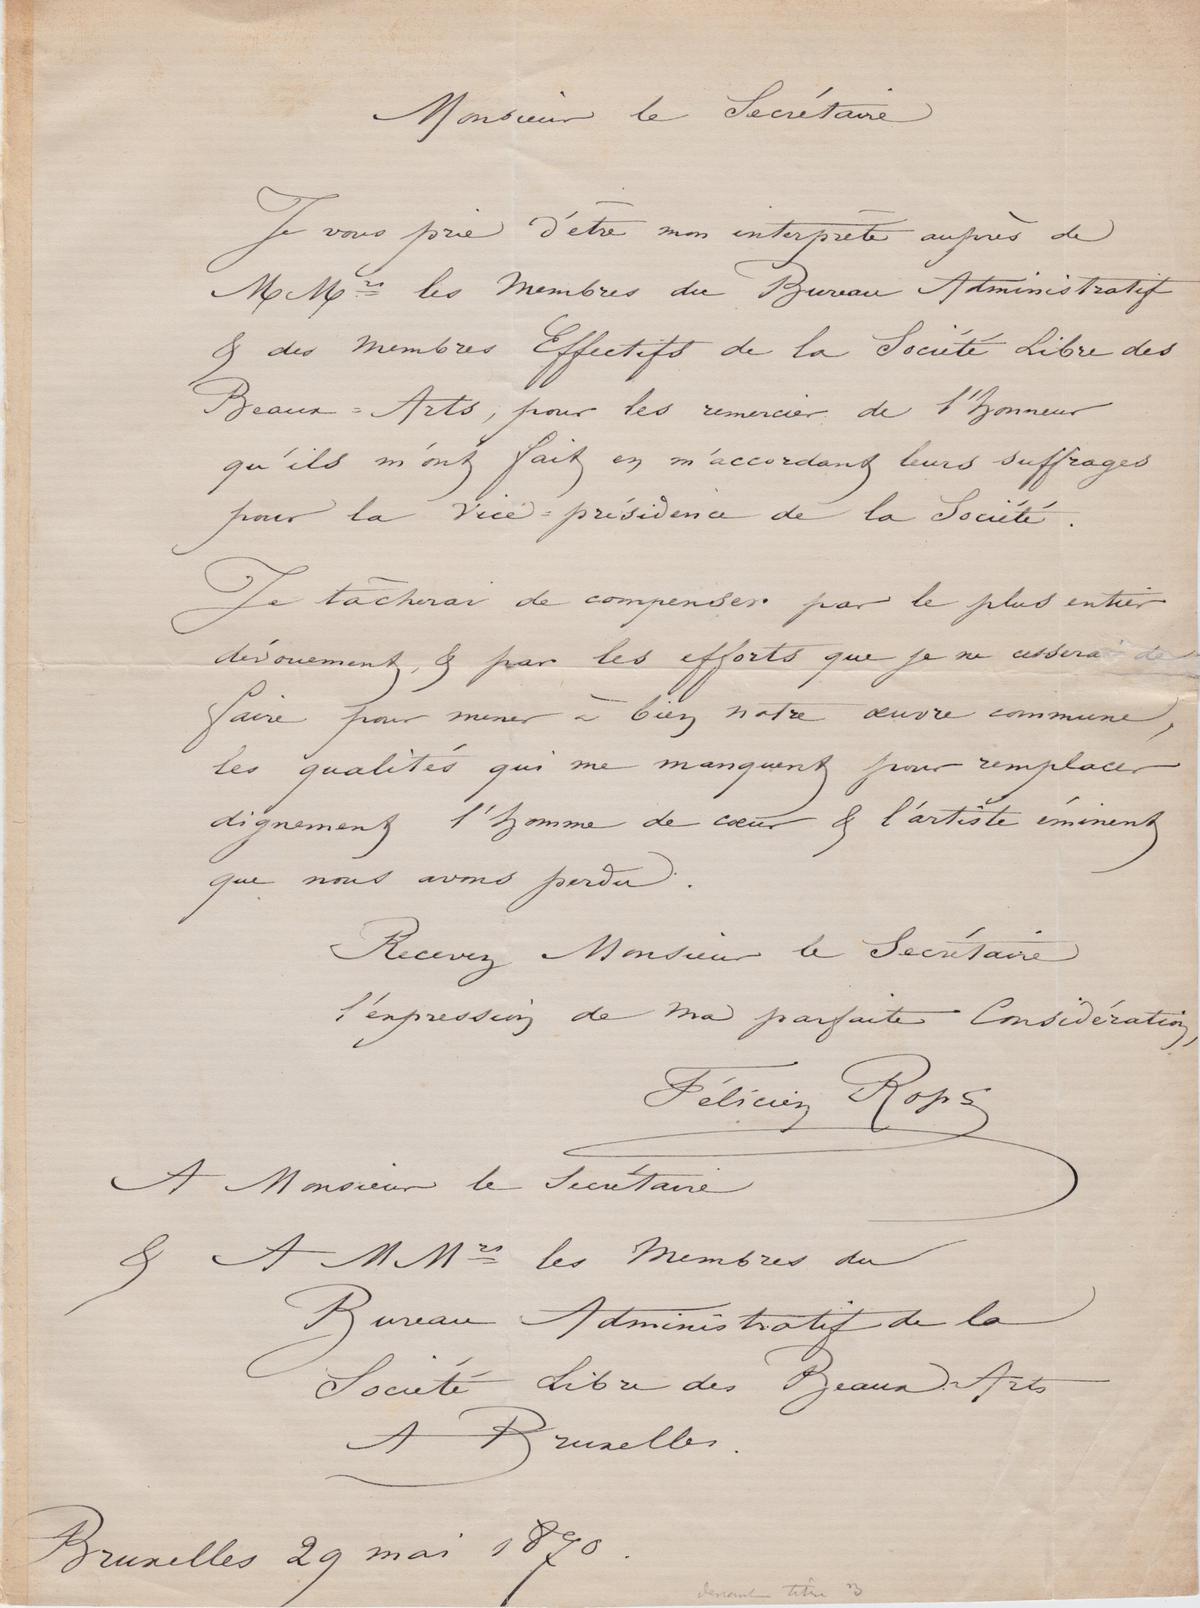 Monsieur le Secrétaire
Je vous prie d'être mon interprète auprès de
MMrs les Membres du Bureau Administratif
& des Membres Effectifs de la Société Libre des
Beaux=Arts, pour les remercier de l'honneur
qu'ils m'ont fait en m'accordant leurs suffrages
pour la vice=présidence de la Société.
Je tâcherai de compenser par le plus entier
dévouement, & par les efforts que je ne cesserai de
faire pour mener à bien notre œuvre commune,
les qualités qui me manquent pour remplacer
dignement l'homme de cœur & l'artiste éminent
que nous avons perdu.
Recevez Monsieur le Secrétaire
l'expression de ma parfaite Considération,
Félicien Rops
A Monsieur le Secrétaire
& A MMrs les Membres du
Bureau Administratif de la
Société Libre des Beaux-Arts
A Bruxelles.
Bruxelles 29 mai 1870.
titre 3